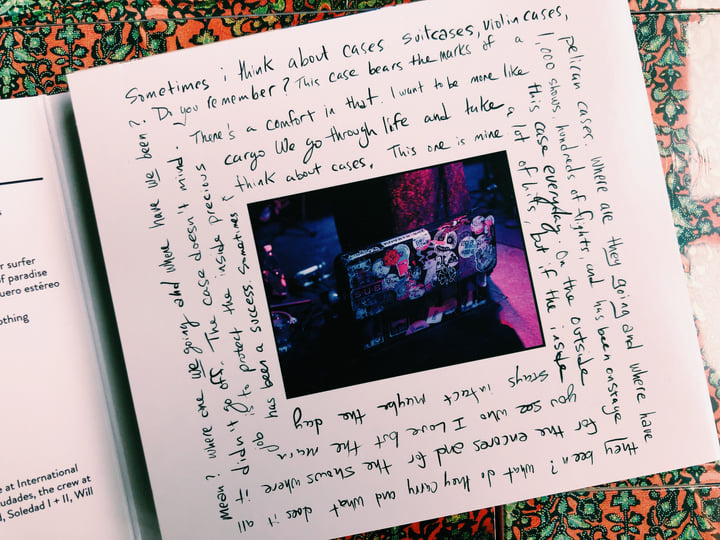 r surfer
of paradise
uero estéreo
othing
e at International
udades, the crew at
d, Soledad I + II, Will
Sometimes i think about cases suitcases, violin cases,
pelican cases. Where are they going and where have
they been? What do they carry and what does it all
mean? Where are we going and where have we been?
Do you remember? This case bears the marks of a
1,000 shows, hundreds of flights, and has been onstage
for the encores and for the shows where
it didn't go off. The case doesn't mind.
There's a comfort in that. I want to be more like
this case everyday. On the outside
you see who I Love but the main
job is to protect the inside precious
cargo We go through life and take
a lot of hits, but if the inside
stays intact maybe the day
has been a success. Sometimes i
think about cases. This one is mine